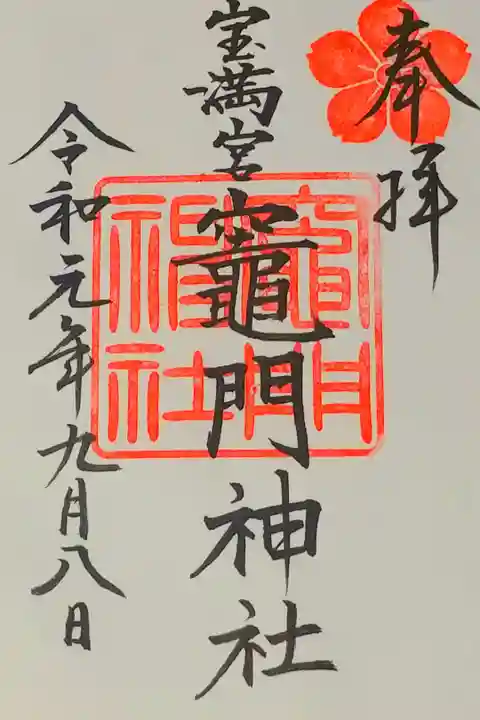 奉拝
宝満宮竈門神社
竈門神社
令和元年九月八日